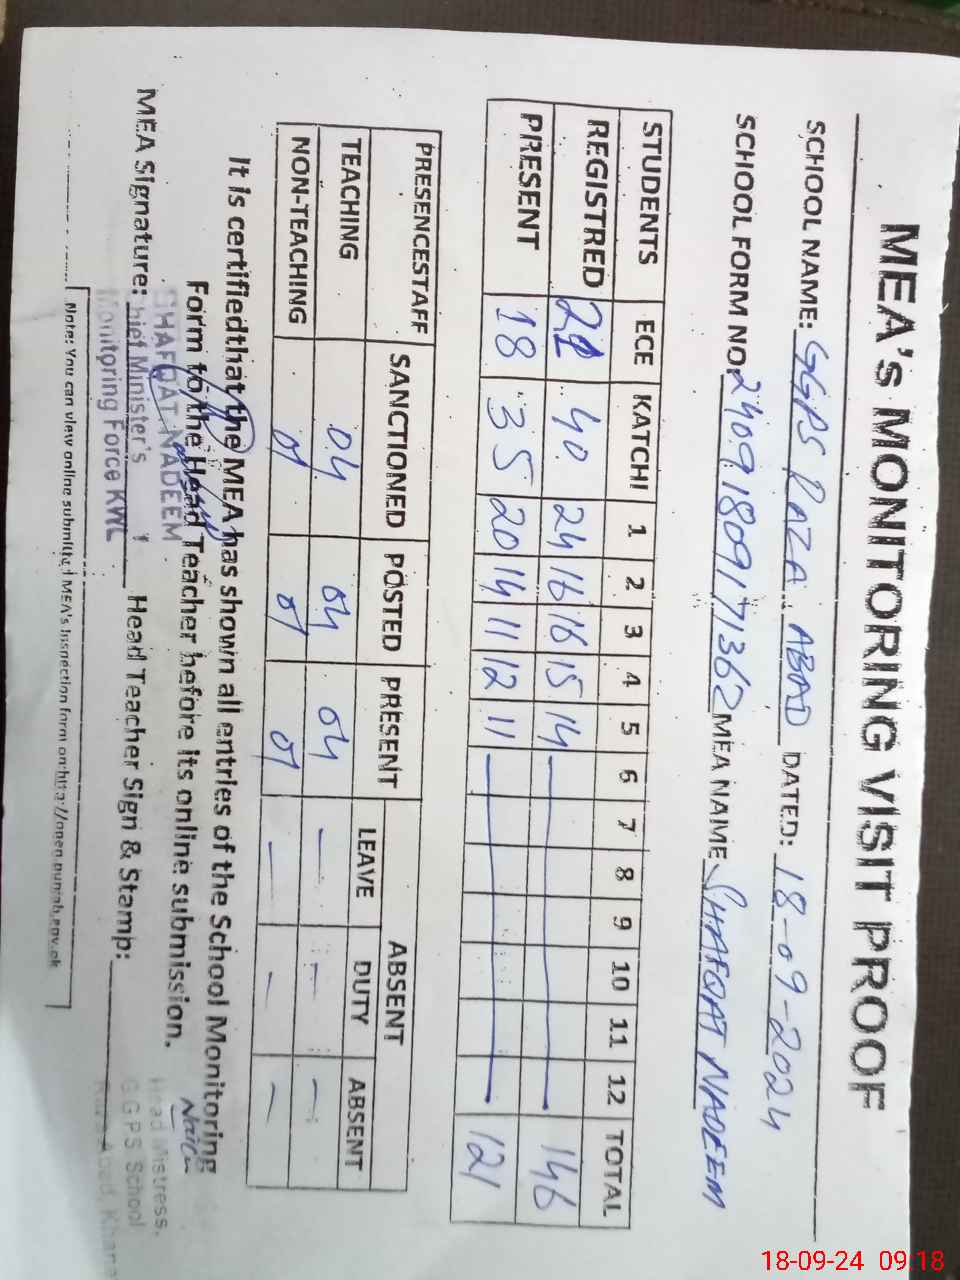 MEA's MONITORING VISIT PROOF
SCHOOL NAME: GGPS RAZA ABAD DATED: 18-09-2024
SCHOOL FORM NO. 24091809171362 MEA NAME SHAFQAT NADEEM
STUDENTS ECE KATCHI 1 2 3 4 5 6 7 8 9 10 11 12 TOTAL
REGISTRED 21 40 24 16 16 15 14 146
PRESENT 18 35 20 14 11 12 11 121
PRESENCESTAFF SANCTIONED POSTED PRESENT ABSENT
LEAVE DUTY ABSENT
TEACHING 04 04 04 — — —
NON-TEACHING 01 01 01 — — —
It is certifiedthat the MEA has shown all entries of the School Monitoring
Form to the Head Teacher before its online submission.
SHAFQAT NADEEM
Chief Minister's
Monitoring Force KWL
MEA Signature: Head Teacher Sign & Stamp:
Head Mistress,
G.G P S School
Raza Abad,
Note: You can view online submitted MEA's Inspection form on:http://open.punjab.gov.pk
18-09-24 09:18